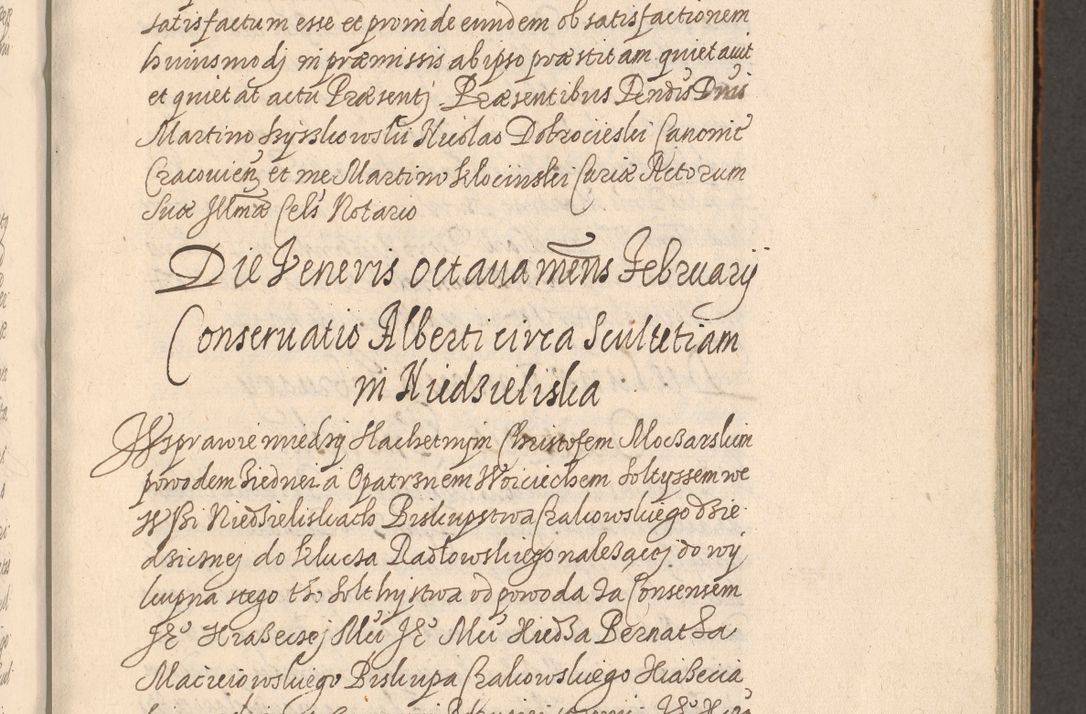 satisfactum esse et proinde eundem ob satisfactionem
huiusmodj in præmissis ab ipso præstitam quietauit
et quietat actu Præsentj Præsentibus Rendis Dnis
Martino Szyszkowski Nicolao Dobrocieski Canonic
Cracouien et me Martino Klocinski Curiæ Actorum
Suæ Illmæ Cels Notario
Die Veneris octaua mens February
Conseruatio Alberti circa Scultetiam
in Niedzieliska
W sprawie miedzy Slachetnym Christofem Moczarskim
powodem z iednei a Opatrznem Woiciechem Soltyssem we
W Wsi Niedzieliskach Biskupstwa Crakowskiego dzie
dzicznej do klucza Radlowskiego nalezącej do wy
kupna tego tho Solthystwa od powoda za Consensem
Je° X Bernatha
Macieiowskiego Biskupa Crakowskiego Xiazecia